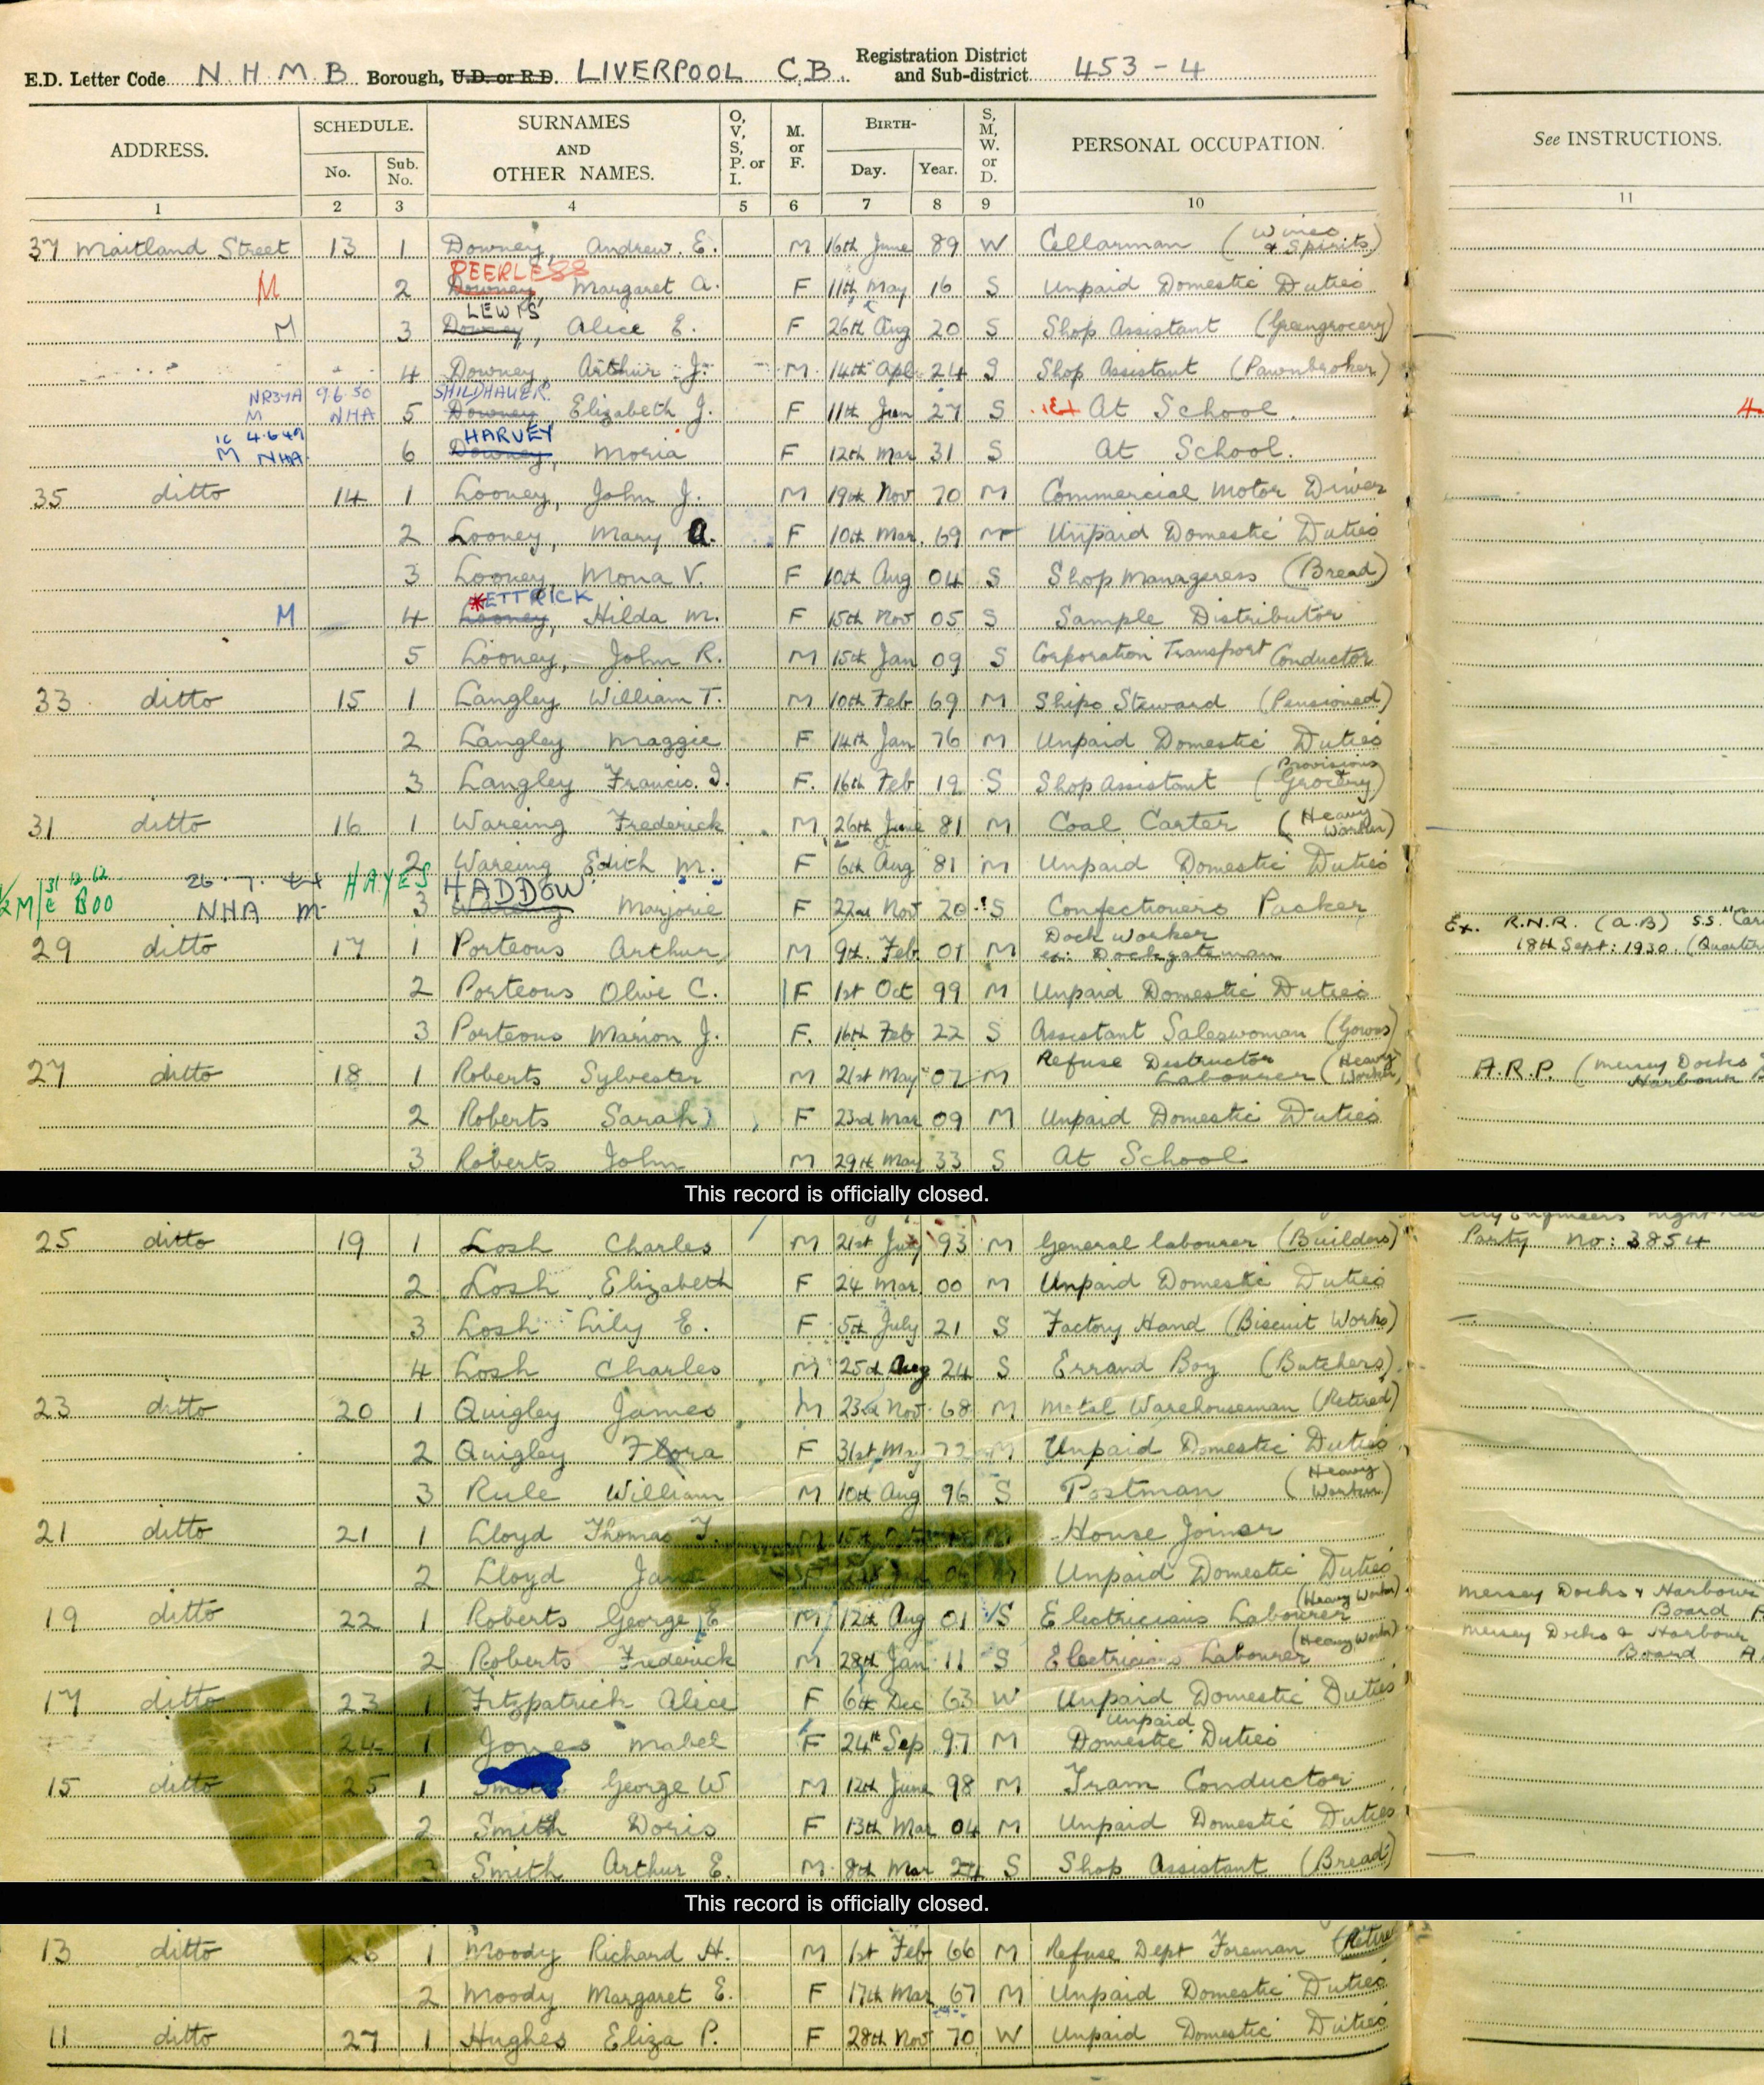 E.D. Letter Code N H M B Borough, U.D. or R.D. LIVERPOOL C B. Registration District and Sub-district 453-4
ADDRESS. SCHEDULE. No. Sub. No. SURNAMES AND OTHER NAMES. O, V, S, P. or I. M. or F. BIRTH- Day. Year. S, M, W. or D. PERSONAL OCCUPATION. See INSTRUCTIONS.
1 2 3 4 5 6 7 8 9 10 11
37 Maitland Street 13 1 Downey, Andrew. E. M 16th June 89 W Cellarman (Wines & Spirits)
PEERLESS
M 2 Downey, Margaret A. F 11th May 16 S Unpaid Domestic Duties
LEWIS
M 3 Downey, Alice E. F 26th Aug 20 S Shop Assistant (Greengrocery)
4 Downey, Arthur J. M 14th Apl 24 S Shop Assistant (Pawnbroker)
NR37A 9.6.50 SHILDHAUER.
M NHA 5 Downey Elizabeth J. F 11th Jun 27 S At School.
4.6.49 HARVEY
M NHA 6 Downey, Moria F 12th Mar 31 S At School.
35 ditto 14 1 Looney, John J. M 19th Nov 70 M Commercial Motor Driver
2 Looney, Mary A. F 10th Mar. 69 M Unpaid Domestic Duties
3 Looney, Mona V. F 10th Aug 04 S Shop Manageress (Bread)
KETTRICK
M 4 Looney, Hilda M. F 15th Nov 05 S Sample Distributor
5 Looney, John R. M 15th Jan 09 S Corporation Transport Conductor
33 ditto 15 1 Langley William T. M 10th Feb 69 M Ships Steward (Pensioned)
2 Langley Maggie F 14th Jan 76 M Unpaid Domestic Duties
3 Langley Francis. I. F. 16th Feb 19 S Shop Assistant (Provisions & Grocery)
31 ditto 16 1 Wareing Frederick M 26th June 81 M Coal Carter (Heavy Worker)
2 Wareing Edith M. F 6th Aug 81 M Unpaid Domestic Duties
31.12.62 26.7.44 HAYES HADDOW
NHA M 3 Wareing Marjorie F 22nd Nov 20 S Confectioners Packer
29 ditto 17 1 Porteous Arthur M 9th. Feb 01 M Dock Worker ex: Dockgateman Ex. R.N.R. (A.B) S.S.
18th Sept: 1930.
2 Porteous Olive C. F 1st Oct 99 M Unpaid Domestic Duties
3 Porteous Marion J. F. 16th Feb 22 S Assistant Saleswoman (Gowns)
27 ditto 18 1 Roberts Sylvester M 21st May 07 M Refuse Destructor Labourer (Heavy Worker) A.R.P. (Mersey Docks
Harbour
2 Roberts Sarah F 23rd Mar 09 M Unpaid Domestic Duties
3 Roberts John M 29th May 33 S At School
This record is officially closed.
25 ditto 19 1 Losh Charles M 21st July 93 M General labourer (Builders) Party No: 3854
2 Losh Elizabeth F 24 Mar 00 M Unpaid Domestic Duties
3 Losh Lily E. F 5th July 21 S Factory Hand (Biscuit Works)
4 Losh Charles M 25th Aug 24 S Errand Boy (Butchers)
23 ditto 20 1 Quigley James M 23rd Nov 68 M Metal Warehouseman (Retired)
2 Quigley Flora F 31st May 72 M Unpaid Domestic Duties
3 Rule William M 10th Aug 96 S Postman (Heavy Worker)
21 ditto 21 1 Lloyd Thomas T. M 15th Oct M House Joiner
2 Lloyd Jane F M Unpaid Domestic Duties
19 ditto 22 1 Roberts George E M 12th Aug 01 S Electricians Labourer (Heavy Worker) Mersey Docks & Harbour
Board
2 Roberts Frederick M 28th Jan 11 S Electricians Labourer (Heavy Worker) Mersey Docks & Harbour
Board
17 ditto 23 1 Fitzpatrick Alice F 6th Dec 63 W Unpaid Domestic Duties
24 1 Jones Mabel F 24th Sep 97 M Unpaid Domestic Duties
15 ditto 25 1 Smith George W M 12th June 98 M Tram Conductor
2 Smith Doris F 13th Mar 04 M Unpaid Domestic Duties
3 Smith Arthur E. M. 8th Mar 24 S Shop Assistant (Bread)
This record is officially closed.
13 ditto 26 1 Moody Richard H. M 1st Feb 66 M Refuse Dept Foreman (Retire
2 Moody Margaret E. F 17th Mar 67 M Unpaid Domestic Duties
11 ditto 27 1 Hughes Eliza P. F 28th Nov 70 W Unpaid Domestic Duties